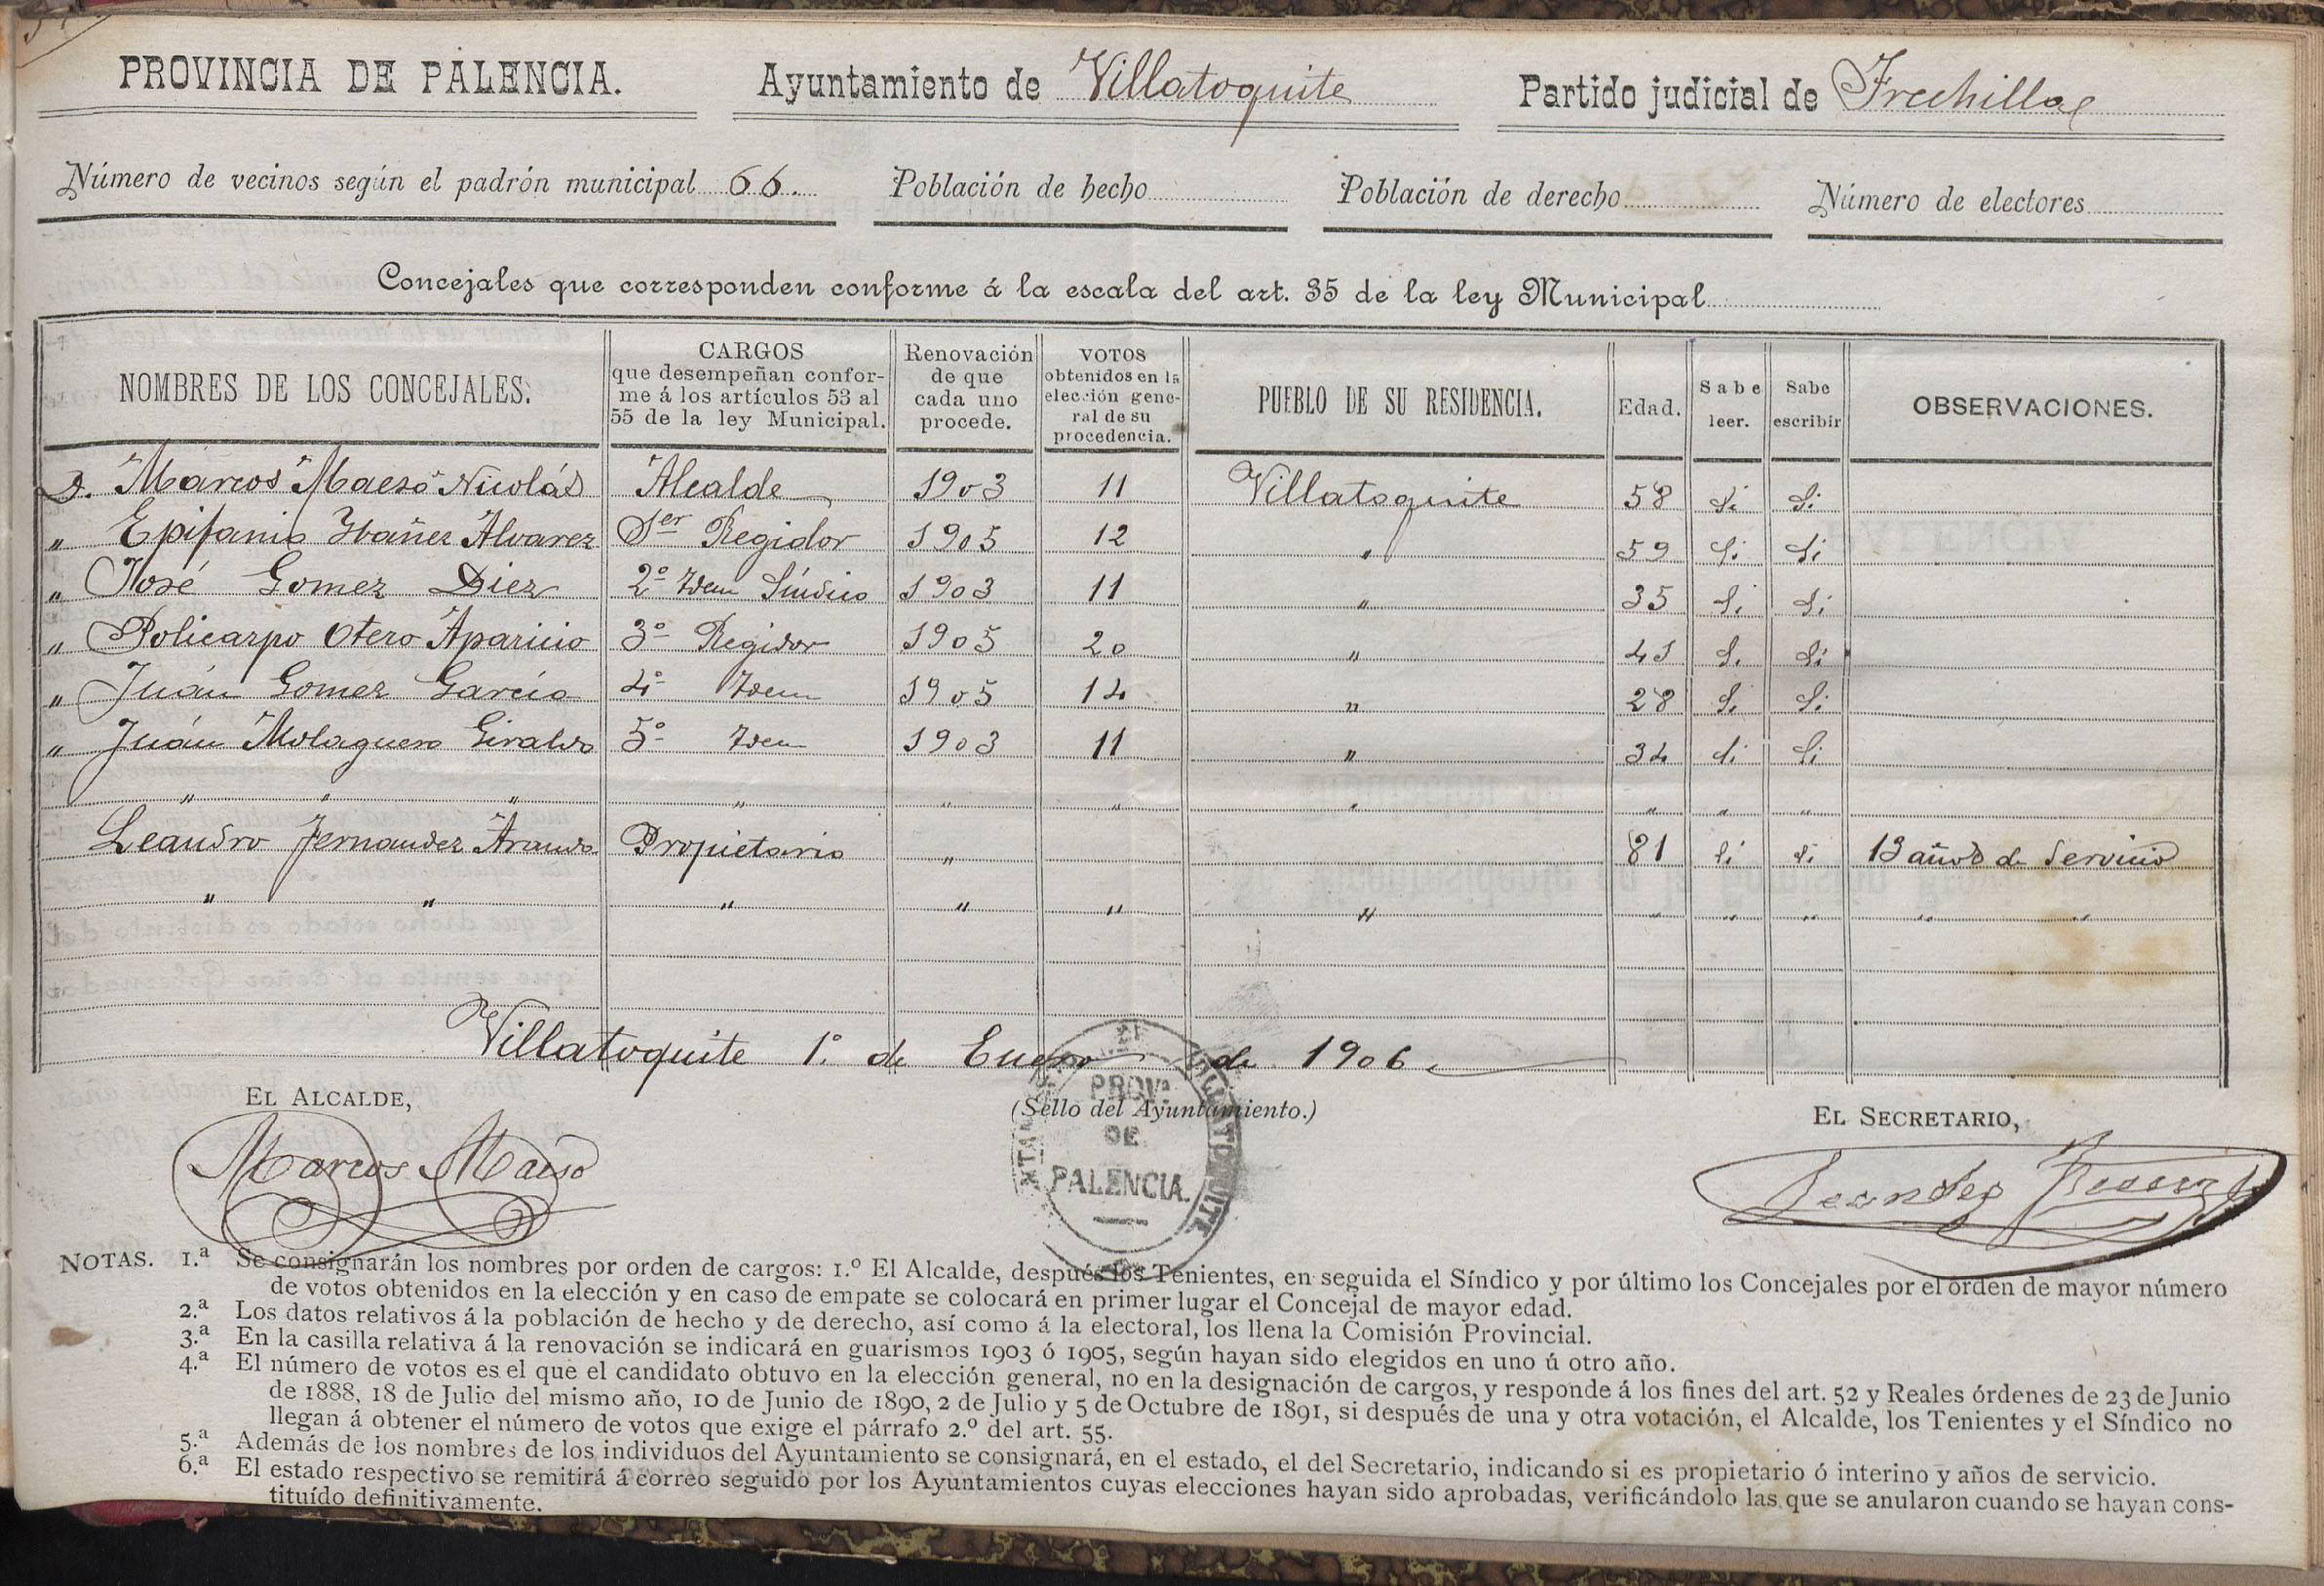 PROVINCIA DE PALENCIA. Ayuntamiento de Villatoquite Partido judicial de Frechilla
Número de vecinos según el padrón municipal 66. Población de hecho Población de derecho Número de electores
Concejales que corresponden conforme á la escala del art. 35 de la ley Municipal
NOMBRES DE LOS CONCEJALES. CARGOS que desempeñan conforme á los artículos 53 al 55 de la ley Municipal. Renovación de que cada uno procede. VOTOS obtenidos en la elección general de su procedencia. PUEBLO DE SU RESIDENCIA. Edad. Sabe leer. Sabe escribir OBSERVACIONES.
D. Marcos Maeso Nicolás Alcalde 1903 11 Villatoquite 58 Si Si
" Epifanio Ybañez Alvarez 1er Regidor 1905 12 " 59 Si Si
" José Gomez Diez 2º Ydem Síndico 1903 11 " 35 Si Si
" Policarpo Otero Aparicio 3º Regidor 1905 20 " 41 Si Si
" Juán Gomez García 4º Ydem 1905 14 " 28 Si Si
" Juán Molaguero Giraldo 5º Ydem 1903 11 " 34 Si Si
" " " " " " " " " "
Leandro Fernandez Aranda Propietario " 81 Si Si 13 años de Servicio
" " " " " " " " " " "
Villatoquite 1º de Enero de 1906
EL ALCALDE, (Sello del Ayuntamiento.) EL SECRETARIO,
PROVª
DE
PALENCIA.
Marcos Maeso
NOTAS. 1.ª Se consignarán los nombres por orden de cargos: 1.º El Alcalde, después los Tenientes, en seguida el Síndico y por último los Concejales por el orden de mayor número
de votos obtenidos en la elección y en caso de empate se colocará en primer lugar el Concejal de mayor edad.
2.ª Los datos relativos á la población de hecho y de derecho, así como á la electoral, los llena la Comisión Provincial.
3.ª En la casilla relativa á la renovación se indicará en guarismos 1903 ó 1905, según hayan sido elegidos en uno ú otro año.
4.ª El número de votos es el que el candidato obtuvo en la elección general, no en la designación de cargos, y responde á los fines del art. 52 y Reales órdenes de 23 de Junio
de 1888, 18 de Julio del mismo año, 10 de Junio de 1890, 2 de Julio y 5 de Octubre de 1891, si después de una y otra votación, el Alcalde, los Tenientes y el Síndico no
llegan á obtener el número de votos que exige el párrafo 2.º del art. 55.
5.ª Además de los nombres de los individuos del Ayuntamiento se consignará, en el estado, el del Secretario, indicando si es propietario ó interino y años de servicio.
6.ª El estado respectivo se remitirá á correo seguido por los Ayuntamientos cuyas elecciones hayan sido aprobadas, verificándolo las que se anularon cuando se hayan cons-
tituído definitivamente.